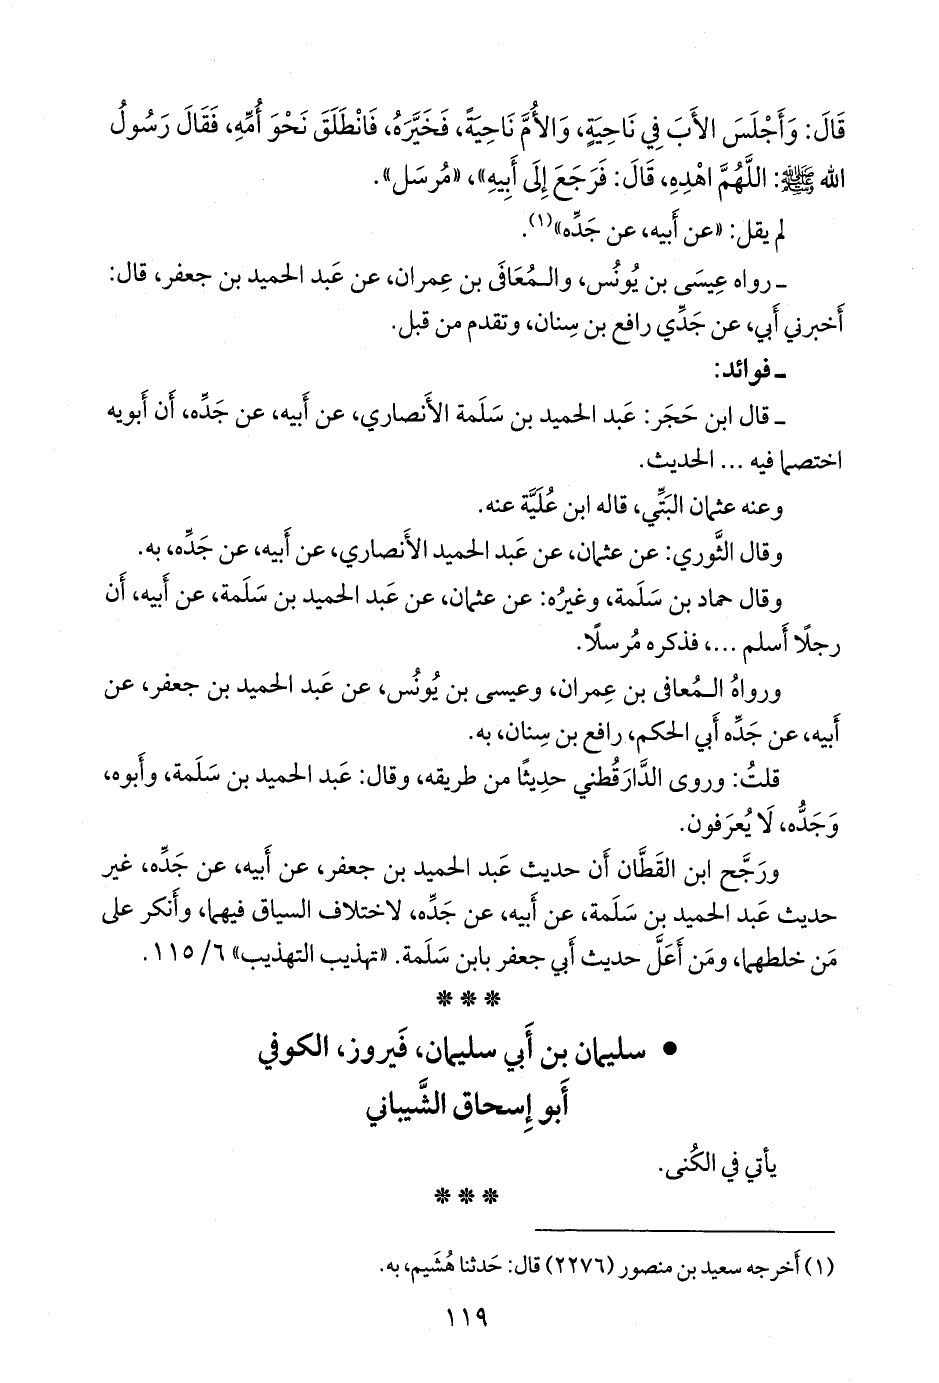 قَالَ: وَأَجْلَسَ الأَبَ فِي نَاحِيَةٍ، وَالأُمَّ نَاحِيَةً، فَخَيَّرَهُ، فَانْطَلَقَ نَحْوَ أُمِّهِ، فَقَالَ رَسُولُ
الله ﷺ: اللَّهُمَّ اهْدِهِ، قَالَ: فَرَجَعَ إِلَى أَبِيهِ»، «مُرسَل».
لم يقل: «عن أَبيه، عن جَدِّه»(١).
ـ رواه عِيسَى بن يُونُس، والـمُعَافَى بن عِمران، عن عَبد الحميد بن جعفر، قال:
أَخبرني أَبي، عن جَدِّي رافع بن سِنان، وتقدم من قبل.
ـ فوائد:
ـ قال ابن حَجَر: عَبد الحميد بن سَلَمة الأَنصاري، عن أَبيه، عن جَدِّه، أَن أَبويه
اختصما فيه ... الحديث.
وعنه عثمان البَتِّي، قاله ابن عُلَيَّة عنه.
وقال الثَّوري: عن عثمان، عن عَبد الحميد الأَنصاري، عن أَبيه، عن جَدِّه، به.
وقال حماد بن سَلَمة، وغيرُه: عن عثمان، عن عَبد الحميد بن سَلَمة، عن أَبيه، أَن
رجلًا أَسلم ...، فذكره مُرسلًا.
ورواهُ الـمُعافى بن عِمران، وعيسى بن يُونُس، عن عَبد الحميد بن جعفر، عن
أَبيه، عن جَدِّه أَبي الحكم، رافع بن سِنان، به.
قلتُ: وروى الدَّارَقُطني حديثًا من طريقه، وقال: عَبد الحميد بن سَلَمة، وأَبوه،
وَجَدُّه، لَا يُعرَفون.
ورَجَّح ابن القَطَّان أَن حديث عَبد الحميد بن جعفر، عن أَبيه، عن جَدِّه، غير
حديث عَبد الحميد بن سَلَمة، عن أَبيه، عن جَدِّه، لاختلاف السياق فيهما، وأَنكر على
مَن خلطهما، ومَن أَعَلَّ حديث أَبي جعفر بابن سَلَمة. «تهذيب التهذيب» ٦/ ١١٥.
* * *
• سليمان بن أَبي سليمان، فَيروز، الكوفي
أَبو إِسحاق الشَّيباني
يأتي في الكُنى.
* * *
(١) أَخرجه سعيد بن منصور (٢٢٧٦) قال: حَدثنا هُشَيم، به.
١١٩